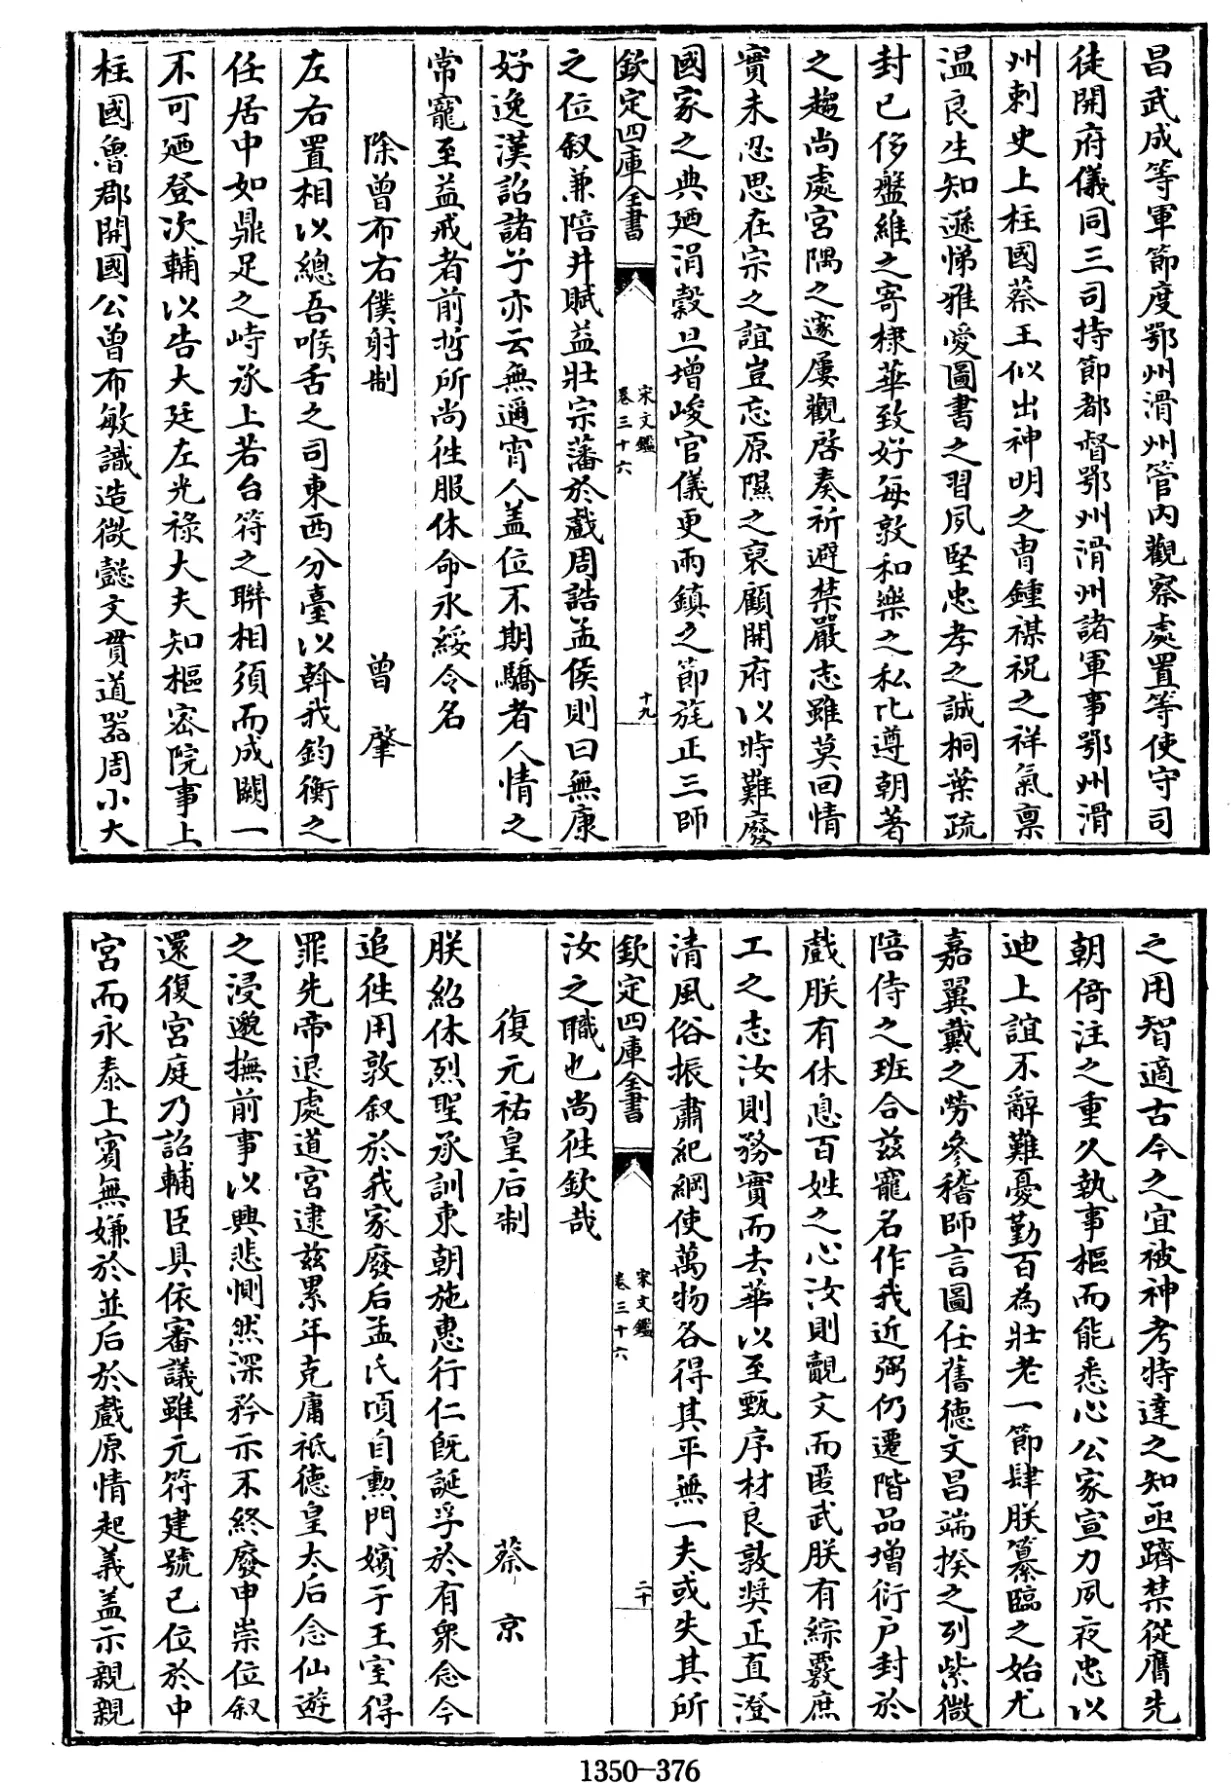 昌武成等軍節度鄂州滑州管内觀察處置等使守司
徒開府儀同三司持節都督鄂州滑州諸軍事鄂州滑
州刺史上柱國蔡王似出神明之胄鍾禖祝之祥氣禀
温良生知遜悌雅愛圖書之習夙堅忠孝之誠桐葉疏
封已侈盤維之寄棣華致好每敦和樂之私比遵朝著
之趨尚處宫隅之邃屢觀啓奏祈避禁嚴志雖莫回情
實未忍思在宗之誼豈忘原隰之裒顧開府以時難廢
國家之典廼涓穀旦增峻官儀更兩鎮之節旄正三師
欽定四庫全書
宋文鑑
卷三十六
十九
之位叙兼陪井賦益壯宗藩於戲周誥孟侯則曰無康
好逸漢詔諸子亦云無邇宵人盖位不期驕者人情之
常寵至益戒者前哲所尚徃服休命永綏令名
除曾布右僕射制
曾肇
左右置相以總吾喉舌之司東西分臺以斡我鈞衡之
任居中如鼎足之峙承上若台符之聯相須而成闕一
不可廼登次輔以告大廷左光禄大夫知樞密院事上
柱國魯郡開國公曾布敏識造微懿文貫道器周小大
之用智適古今之宜被神考特達之知亟躋禁從膺先
朝倚注之重久執事樞而能悉心公家宣力夙夜忠以
迪上誼不辭難憂勤百為壯老一節肆朕纂臨之始尤
嘉翼戴之勞參稽師言圖任舊德文昌端揆之列紫微
陪侍之班合兹寵名作我近弼仍遷階品增衍户封於
戲朕有休息百姓之心汝則覿文而匿武朕有綜覈庶
工之志汝則務實而去華以至甄序材良敦奬正直澄
清風俗振肅紀綱使萬物各得其平無一夫或失其所
欽定四庫全書
宋文鑑
卷三十六
二十
汝之職也尚徃欽哉
復元祐皇后制
蔡京
朕紹休烈聖承訓東朝施惠行仁既誕孚於有衆念今
追徃用敦叙於我家廢后孟氏頃自勲門嬪于王室得
罪先帝退處道宫逮兹累年克庸祗德皇太后念仙遊
之浸邈撫前事以興悲惻然深矜示不終廢申崇位叙
還復宫庭乃詔輔臣具依審議雖元符建號已位於中
宫而永泰上賓無嫌於並后於戲原情起義盖示親親
1350-376